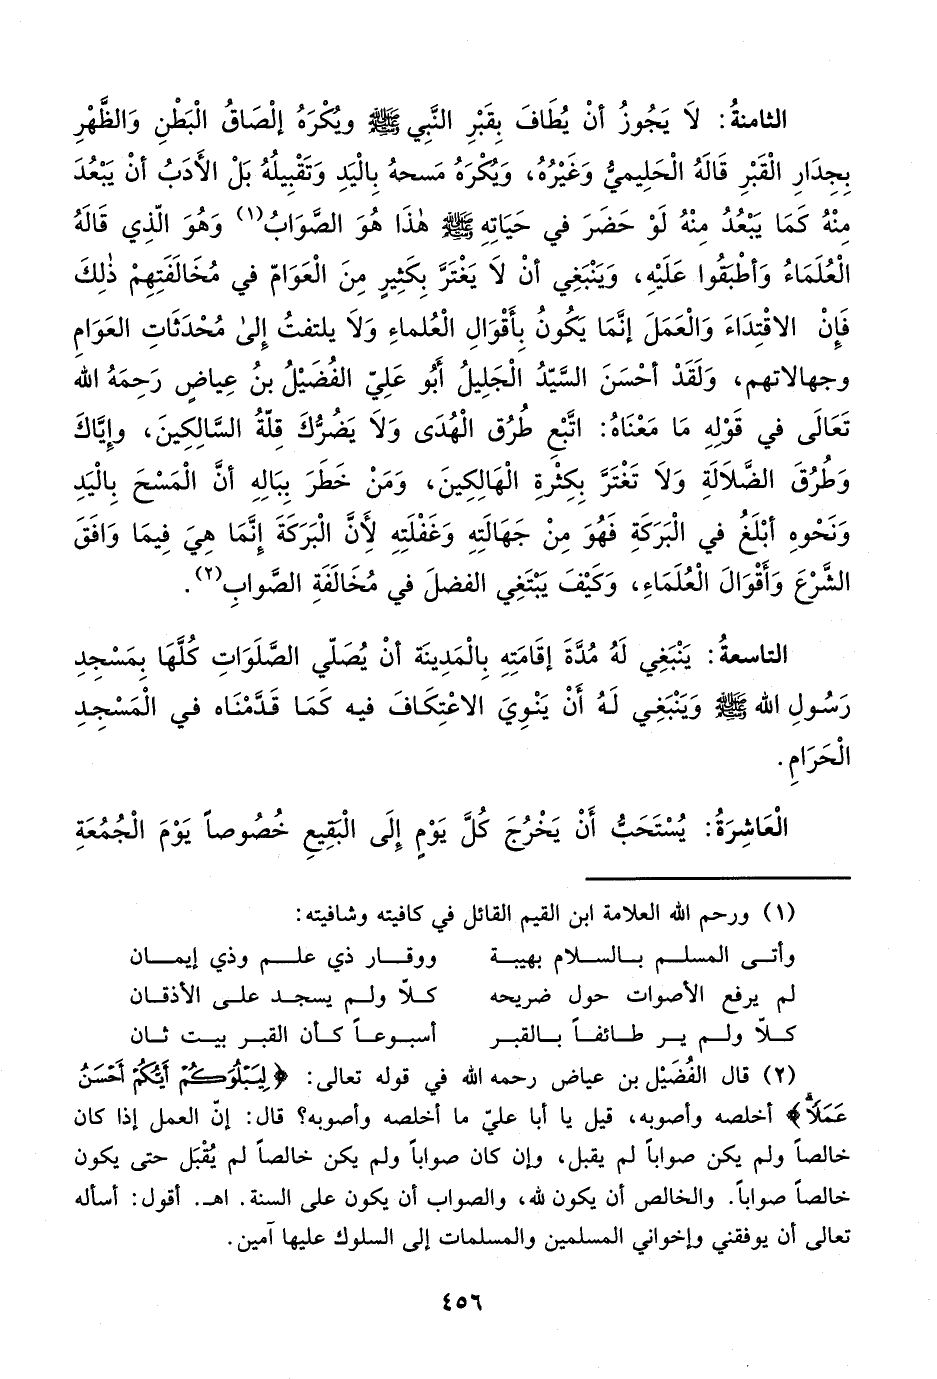 الثامنةُ: لاَ يَجُوزُ أنْ يُطَافَ بِقَبْرِ النَّبِي ﷺ ويُكْرَهُ إلْصَاقُ الْبَطْنِ وَالظَّهْرِ
بِجِدَارِ الْقَبْرِ قَالَهُ الْحَلِيميُّ وَغَيْرُهُ، وَيُكْرَهُ مَسحهُ بِالْيَدِ وَتَقْبِيلُهُ بَلْ الأَدَبُ أنْ يَبْعُدَ
مِنْهُ كَمَا يَبْعُدُ مِنْهُ لَوْ حَضَرَ في حَيَاتِهِ ﷺ هٰذَا هُوَ الصَّوَابُ(١) وَهُوَ الّذِي قَالَهُ
الْعُلَمَاءُ وَأطْبَقُوا عَلَيْهِ، وَيَنْبَغِي أنْ لَا يَغْتَرَّ بِكَثِيرٍ مِنَ الْعَوَامِّ في مُخَالَفَتِهِمْ ذٰلِكَ
فَإنْ الاقْتِدَاءَ وَالْعَمَلَ إنَّمَا يَكُونُ بِأقْوَالِ الْعُلماءِ وَلَا يلتفتُ إلىٰ مُحْدَثَاتِ العَوَامِ
وجهالاتهم، وَلَقَدْ أحْسَنَ السَّيّدُ الْجَلِيلُ أبُو عَلِيّ الفُضَيْلُ بنُ عِياضٍ رَحِمَهُ الله
تَعَالَى في قَوْلِهِ مَا مَعْنَاهُ: اتبْعِ طُرُق الْهُدَى وَلَا يَضُرُّكَ قِلّةُ السَّالِكِينَ، وإيَّاكَ
وَطُرُقَ الضَّلَالَةِ وَلَا تَغْتَرَّ بِكَثْرةِ الْهَالِكِينَ، وَمَنْ خَطَرَ بِبَالِهِ أنَّ الْمَسْحَ بِالْيَدِ
وَنَحْوِهِ أبْلَغُ في الْبَرَكَةِ فَهُوَ مِنْ جَهَالَتِهِ وَغَفْلَتِهِ لأَنَّ الْبَرَكَةَ إنَّمَا هِيَ فِيمَا وَافَقَ
الشَّرْعَ وَأَقْوَالَ الْعُلَمَاءِ، وَكَيْفَ يَبْتَغِي الفضلَ في مُخَالَفَةِ الصَّوابِ(٢).
التاسعةُ: يَنْبَغِي لَهُ مُدَّةَ إقَامَتِهِ بِالْمَدِينَة أنْ يُصَلّي الصَّلَوَاتِ كُلَّهَا بِمَسْجِدِ
رَسُولِ الله ﷺ وَيَنْبَغِي لَهُ أَنْ يَنْوِيَ الاعْتِكَافَ فيه كَمَا قَدَّمْنَاه في الْمَسْجِدِ
الْحَرَامِ.
الْعَاشِرَةُ: يُسْتَحَبُّ أَنْ يَخْرُجَ كُلَّ يَوْمٍ إلَى الْبَقِيعِ خُصُوصاً يَوْمَ الْجُمُعَةِ
(١) ورحم الله العلامة ابن القيم القائل في كافيته وشافيته:
وأتى المسلم بالسلام بهيبة ووقار ذي علم وذي إيمان
لم يرفع الأصوات حول ضريحه كلّا ولم يسجد على الأذقان
كلّا ولم ير طائفاً بالقبر أسبوعاً كأن القبر بيت ثان
(٢) قال الفُضَيْل بن عياض رحمه الله في قوله تعالى: ﴿لِيَبْلُوَكُمْ أَيُّكُمْ أَحْسَنُ
عَمَلًا﴾ أخلصه وأصوبه، قيل يا أبا عليّ ما أخلصه وأصوبه؟ قال: إنّ العمل إذا كان
خالصاً ولم يكن صواباً لم يقبل، وإن كان صواباً ولم يكن خالصاً لم يُقْبَل حتى يكون
خالصاً صواباً. والخالص أن يكون لله، والصواب أن يكون على السنة. اهـ. أقول: أسأله
تعالى أن يوفقني وإخواني المسلمين والمسلمات إلى السلوك عليها آمين.
٤٥٦